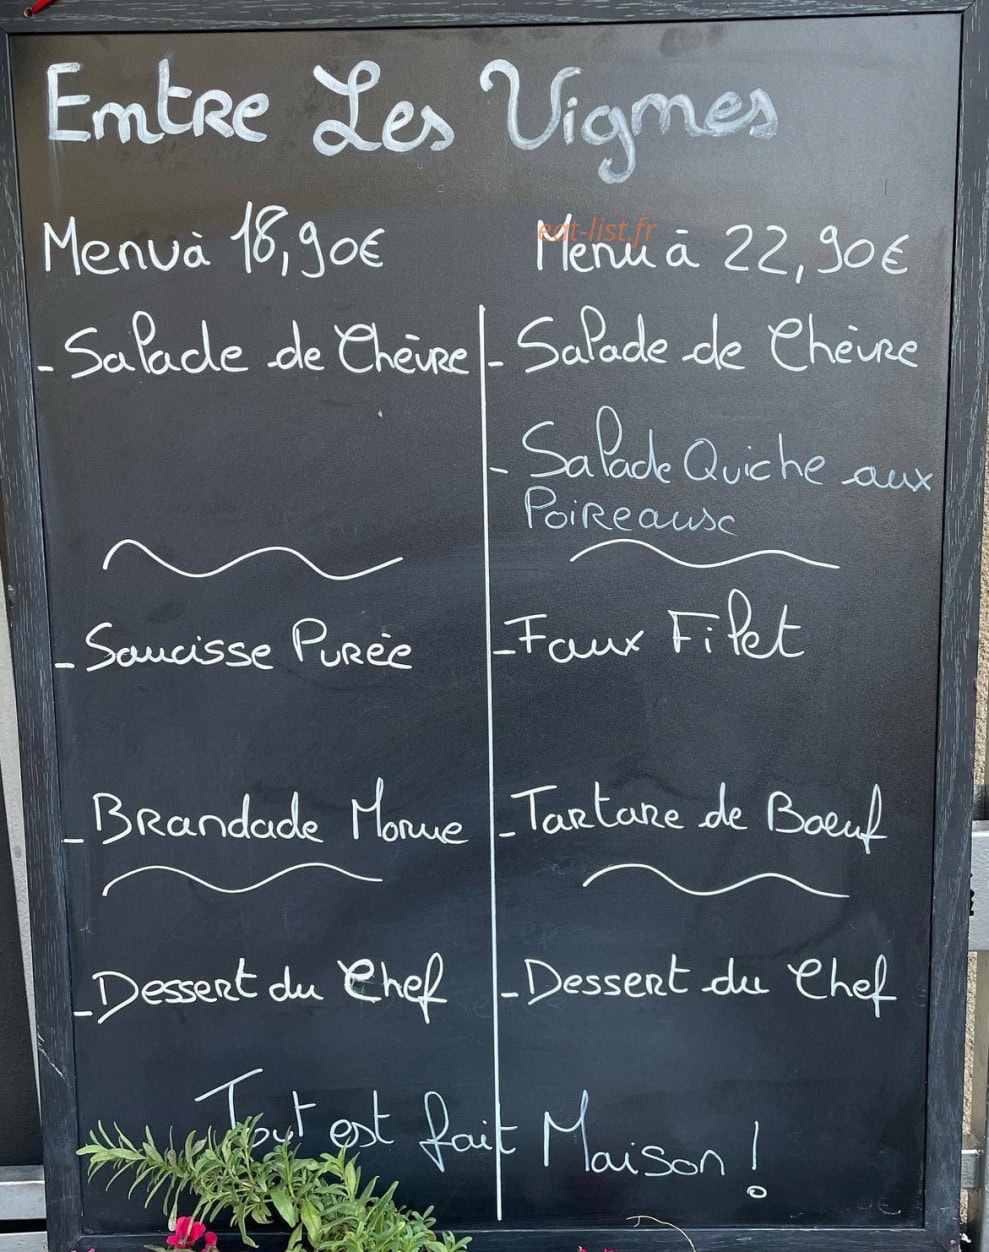 Entre Les Vignes
Menu à 18,90€
- Salade de Chèvre
- Saucisse Purée
- Brandade Morue
- Dessert du Chef
eat-list.fr
Menu à 22,90€
- Salade de Chèvre
- Salade Quiche aux
Poireaux
- Faux Filet
- Tartare de Boeuf
- Dessert du Chef
Tout est fait Maison !